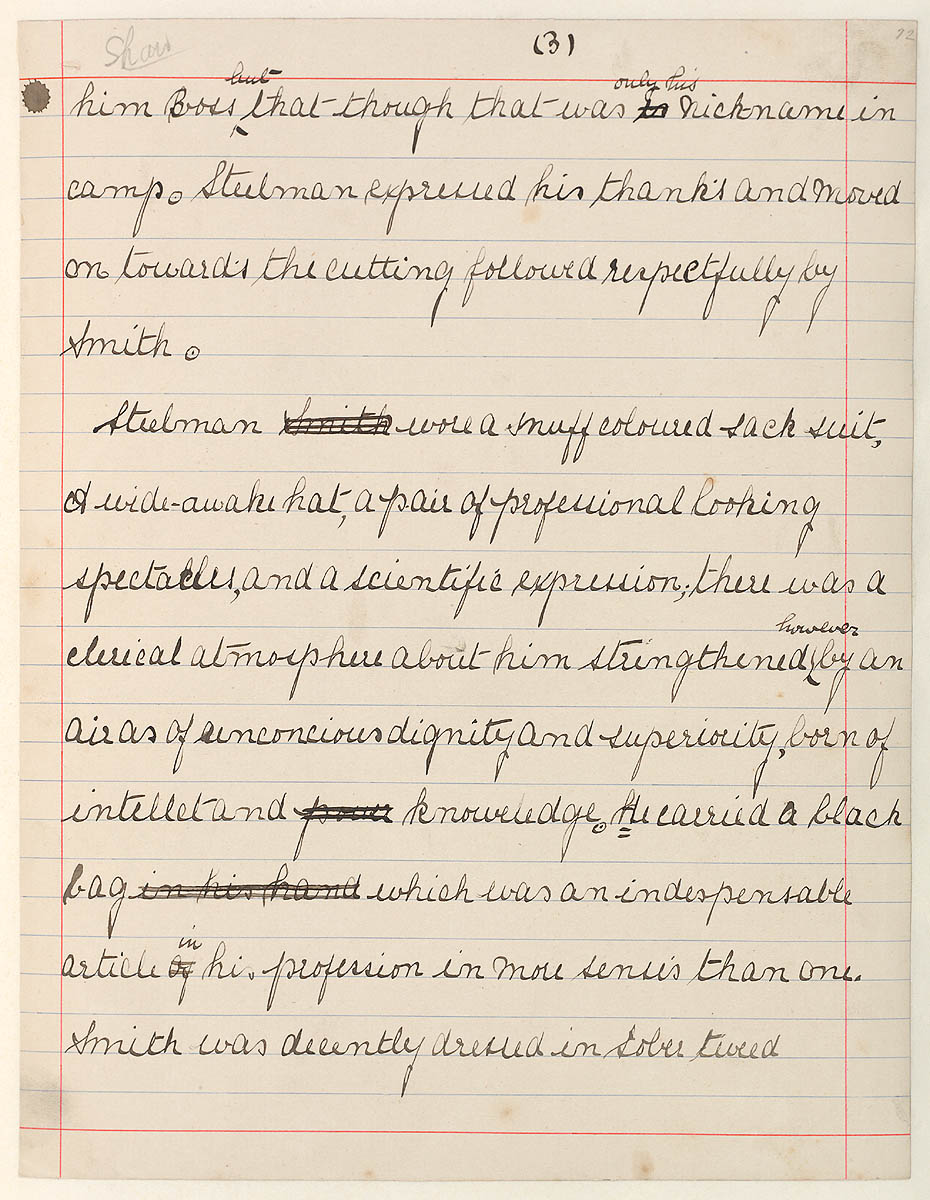 Shaw
(3)
72
but
only his
him Boss, that though that was to nickname in
camp. Steelman expressed his thanks and moved
on towards the cutting followed respectfully by
Smith.
Steelman Smith wore a snuff coloured sack suit,
A wide-awake hat, a pair of professional looking
spectacles, and a scientific expression; there was a
however
clerical atmosphere about him strengthened, by an
air as of unconcious dignity and superiority, born of
intellet and power knoweledge. He carried a black
bag in his hand which was an indespensable
in
article of his profession in more senses than one.
Smith was decently dressed in sober tweed